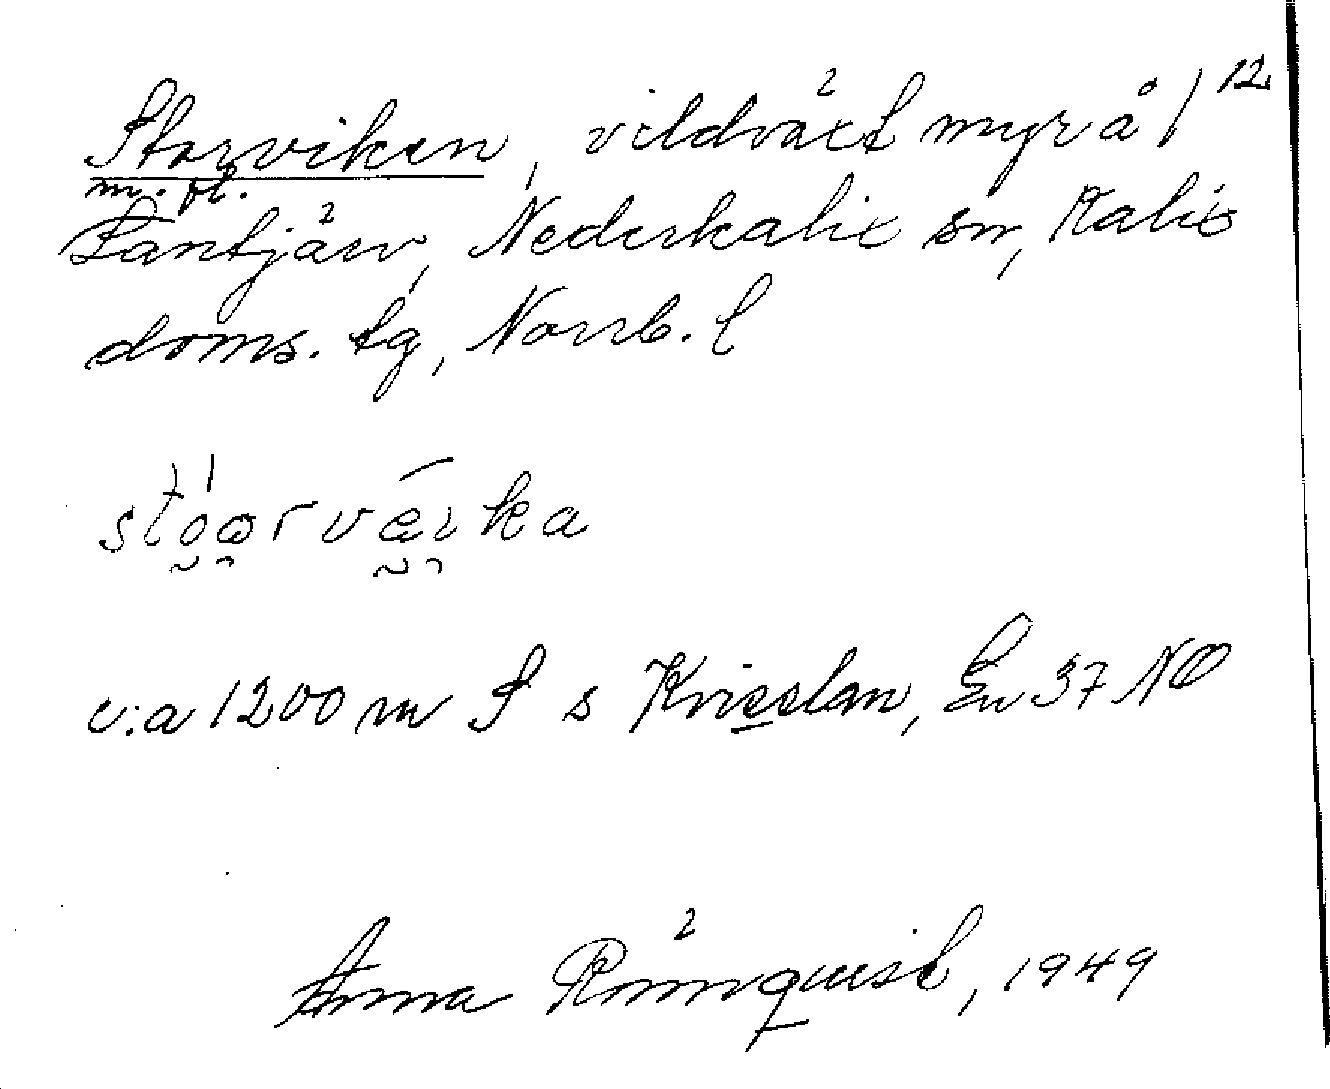 Storviken, vildväxt myrå / 12
m. fl.
Lantjärv, Nederkalix sn, Kalix
doms. tg, Norrb. l
stóorvéika
c:a 1200 m S s Krisslan, Eu 37 NO
Anna Rönnquist, 1949